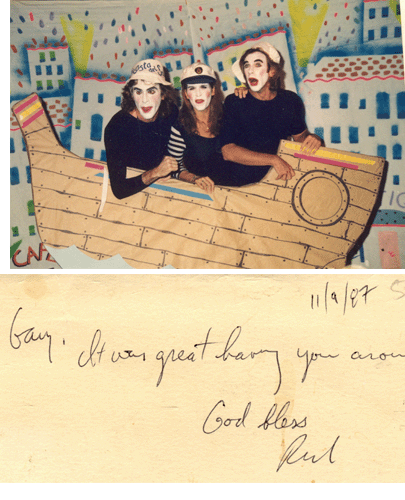 CAF
11/9/87
Gary,
It was great having you aroun
God bless